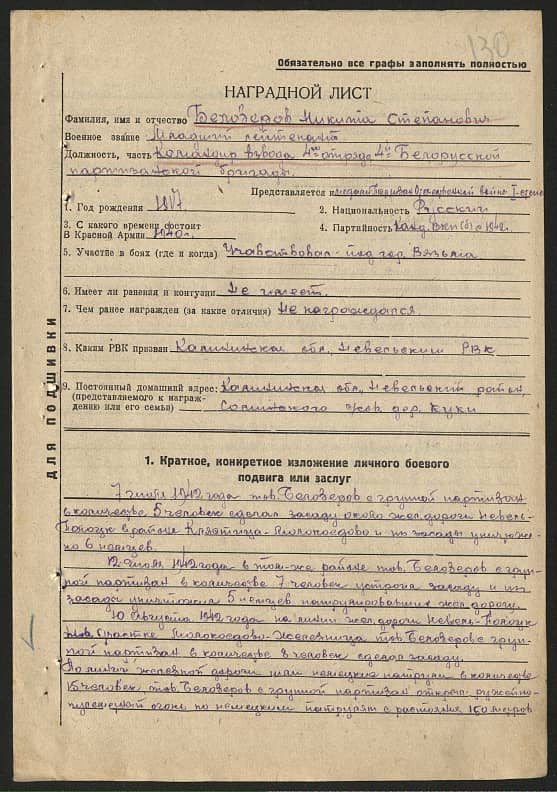 130
Обязательно все графы заполнять полностью
НАГРАДНОЙ ЛИСТ
Фамилия, имя и отчество Белозеров Никита Степанович
Военное звание Младший лейтенант
Должность, часть Командир взвода 4го отряда 4й Белорусской
партизанской бригады.
Представляется к медали Партизан Отечественной войны I степени
1. Год рождения 1917
2. Национальность Русский
3. С какого времени состоит
В Красной Армии 1940г.
4. Партийность канд. ВКП(б) с 1942г.
5. Участие в боях (где и когда) Учавствовал под гор. Вязьма
6. Имеет ли ранения и контузии не имеет.
7. Чем ранее награжден (за какие отличия) не награждался.
8. Каким РВК призван Калининская обл. Невельским РВК
9. Постоянный домашний адрес: Калининская обл., Невельский район,
(представляемого к награж-
дению или его семьи) дер. Куки
ДЛЯ ПОДШИВКИ
1. Краткое, конкретное изложение личного боевого
подвига или заслуг
7 июля 1942 года тов. Белозеров с группой партизан
в количестве 5 человек сделал засаду около жел. дороги Невель-
Полоцк в районе и из засады уничтоже-
но 6 немцев.
12 июля 1942 года в том-же районе тов. Белозеров с груп-
пой партизан в количестве 7 человек устроил засаду и из
засады уничтожил 5 немцев патрулировавших жел. дорогу.
10 Августа 1942 года на линии жел. дороги Невель-Полоцк
участке Железница тов. Белозеров с груп-
пой партизан в количестве 8 человек сделал засаду.
По линии железной дороги шли немецкие патрули в количестве
15 человек тов. Белозеров с группой партизан открыл ружейно-
пулеметный огонь по немецким патрулям с растояния 150 метров